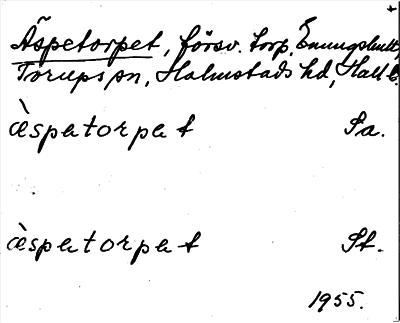 Äspetorpet, försv. torp, Enungshult,
Torups sn, Halmstads hd, Hall l.
æ̀spatorpat Sa.
æ̀spatorpat St.
1955.